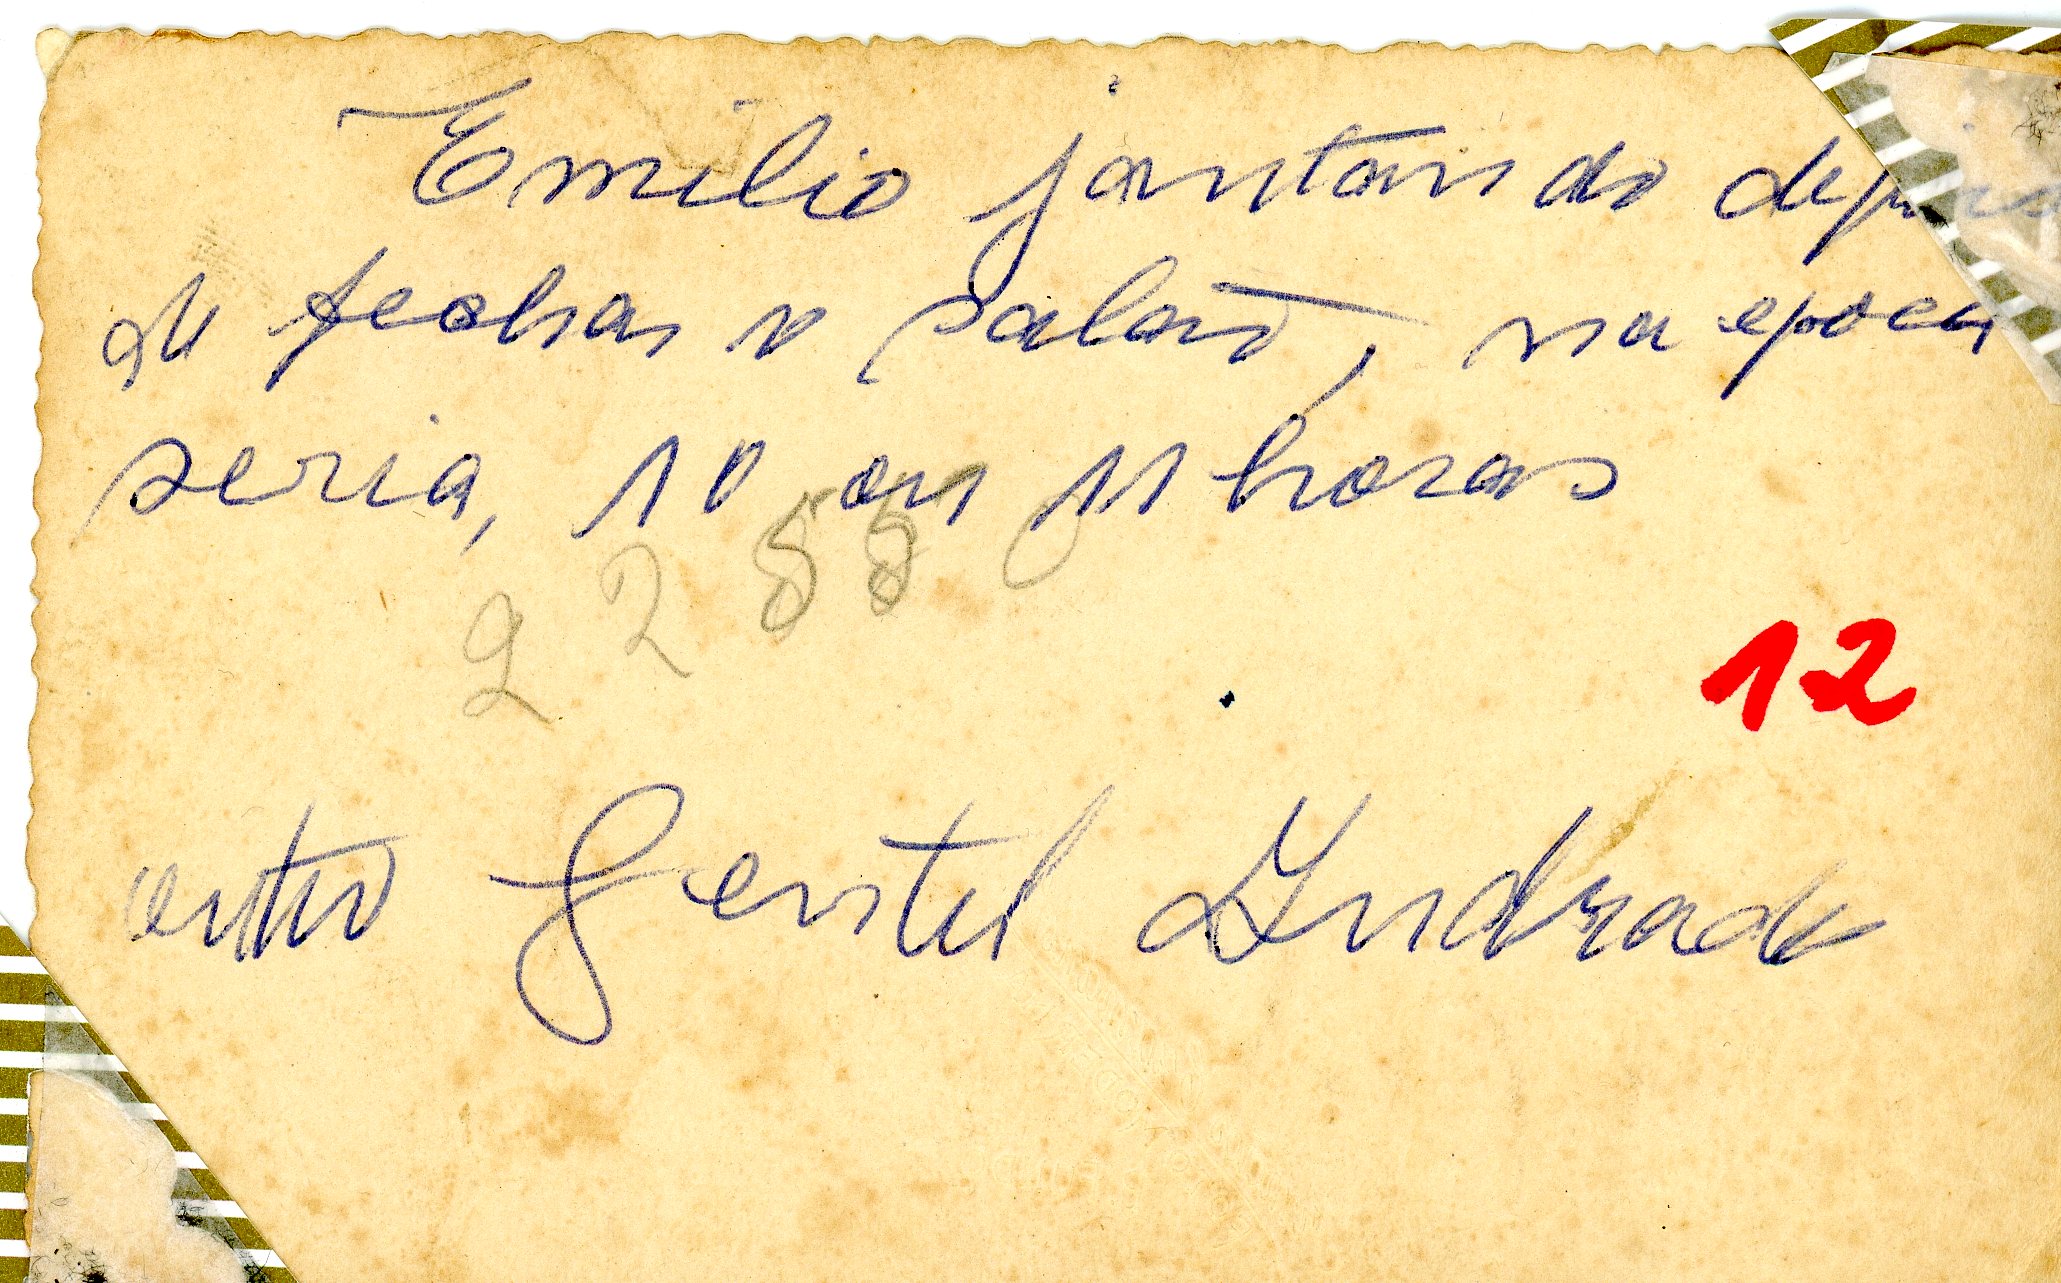 Emilio jantando depois
de fechar o salão, na epoca
seria, 10 ou 11 horas
12
Gentil Andrade